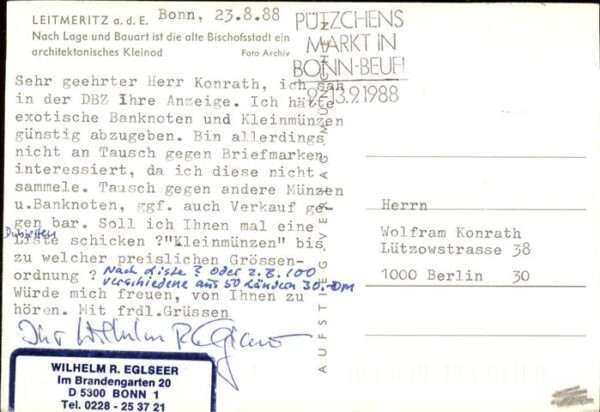 LEITMERITZ a. d. E.
Bonn, 23.8.88
Nach Lage und Bauart ist die alte Bischofsstadt ein
architektonisches Kleinod
Foto Archiv
PÜTZCHENS
MARKT IN
BONN-BEUEL
9.-13.9.1988
Sehr geehrter Herr Konrath, ich sah
in der DBZ Ihre Anzeige. Ich hätte
exotische Banknoten und Kleinmünzen
günstig abzugeben. Bin allerdings
nicht an Tausch gegen Briefmarken
interessiert, da ich diese nicht
sammele. Tausch gegen andere Münzen
u.Banknoten, ggf. auch Verkauf ge-
gen bar. Soll ich Ihnen mal eine
Liste schicken ?"Kleinmünzen" bis
zu welcher preislichen Grössen-
ordnung ? Nach Liste? oder z.B. 100
verschiedene aus 50 Ländern 30.-DM
Würde mich freuen, von Ihnen zu
hören. Mit frdl.Grüssen
Ihr Wilhelm R. Eglseer
AUFSTIEG-VERLAG MÜNCHEN
Herrn
Wolfram Konrath
Lützowstrasse 38
1000 Berlin 30
WILHELM R. EGLSEER
Im Brandengarten 20
D 5300 BONN 1
Tel. 0228 - 25 37 21